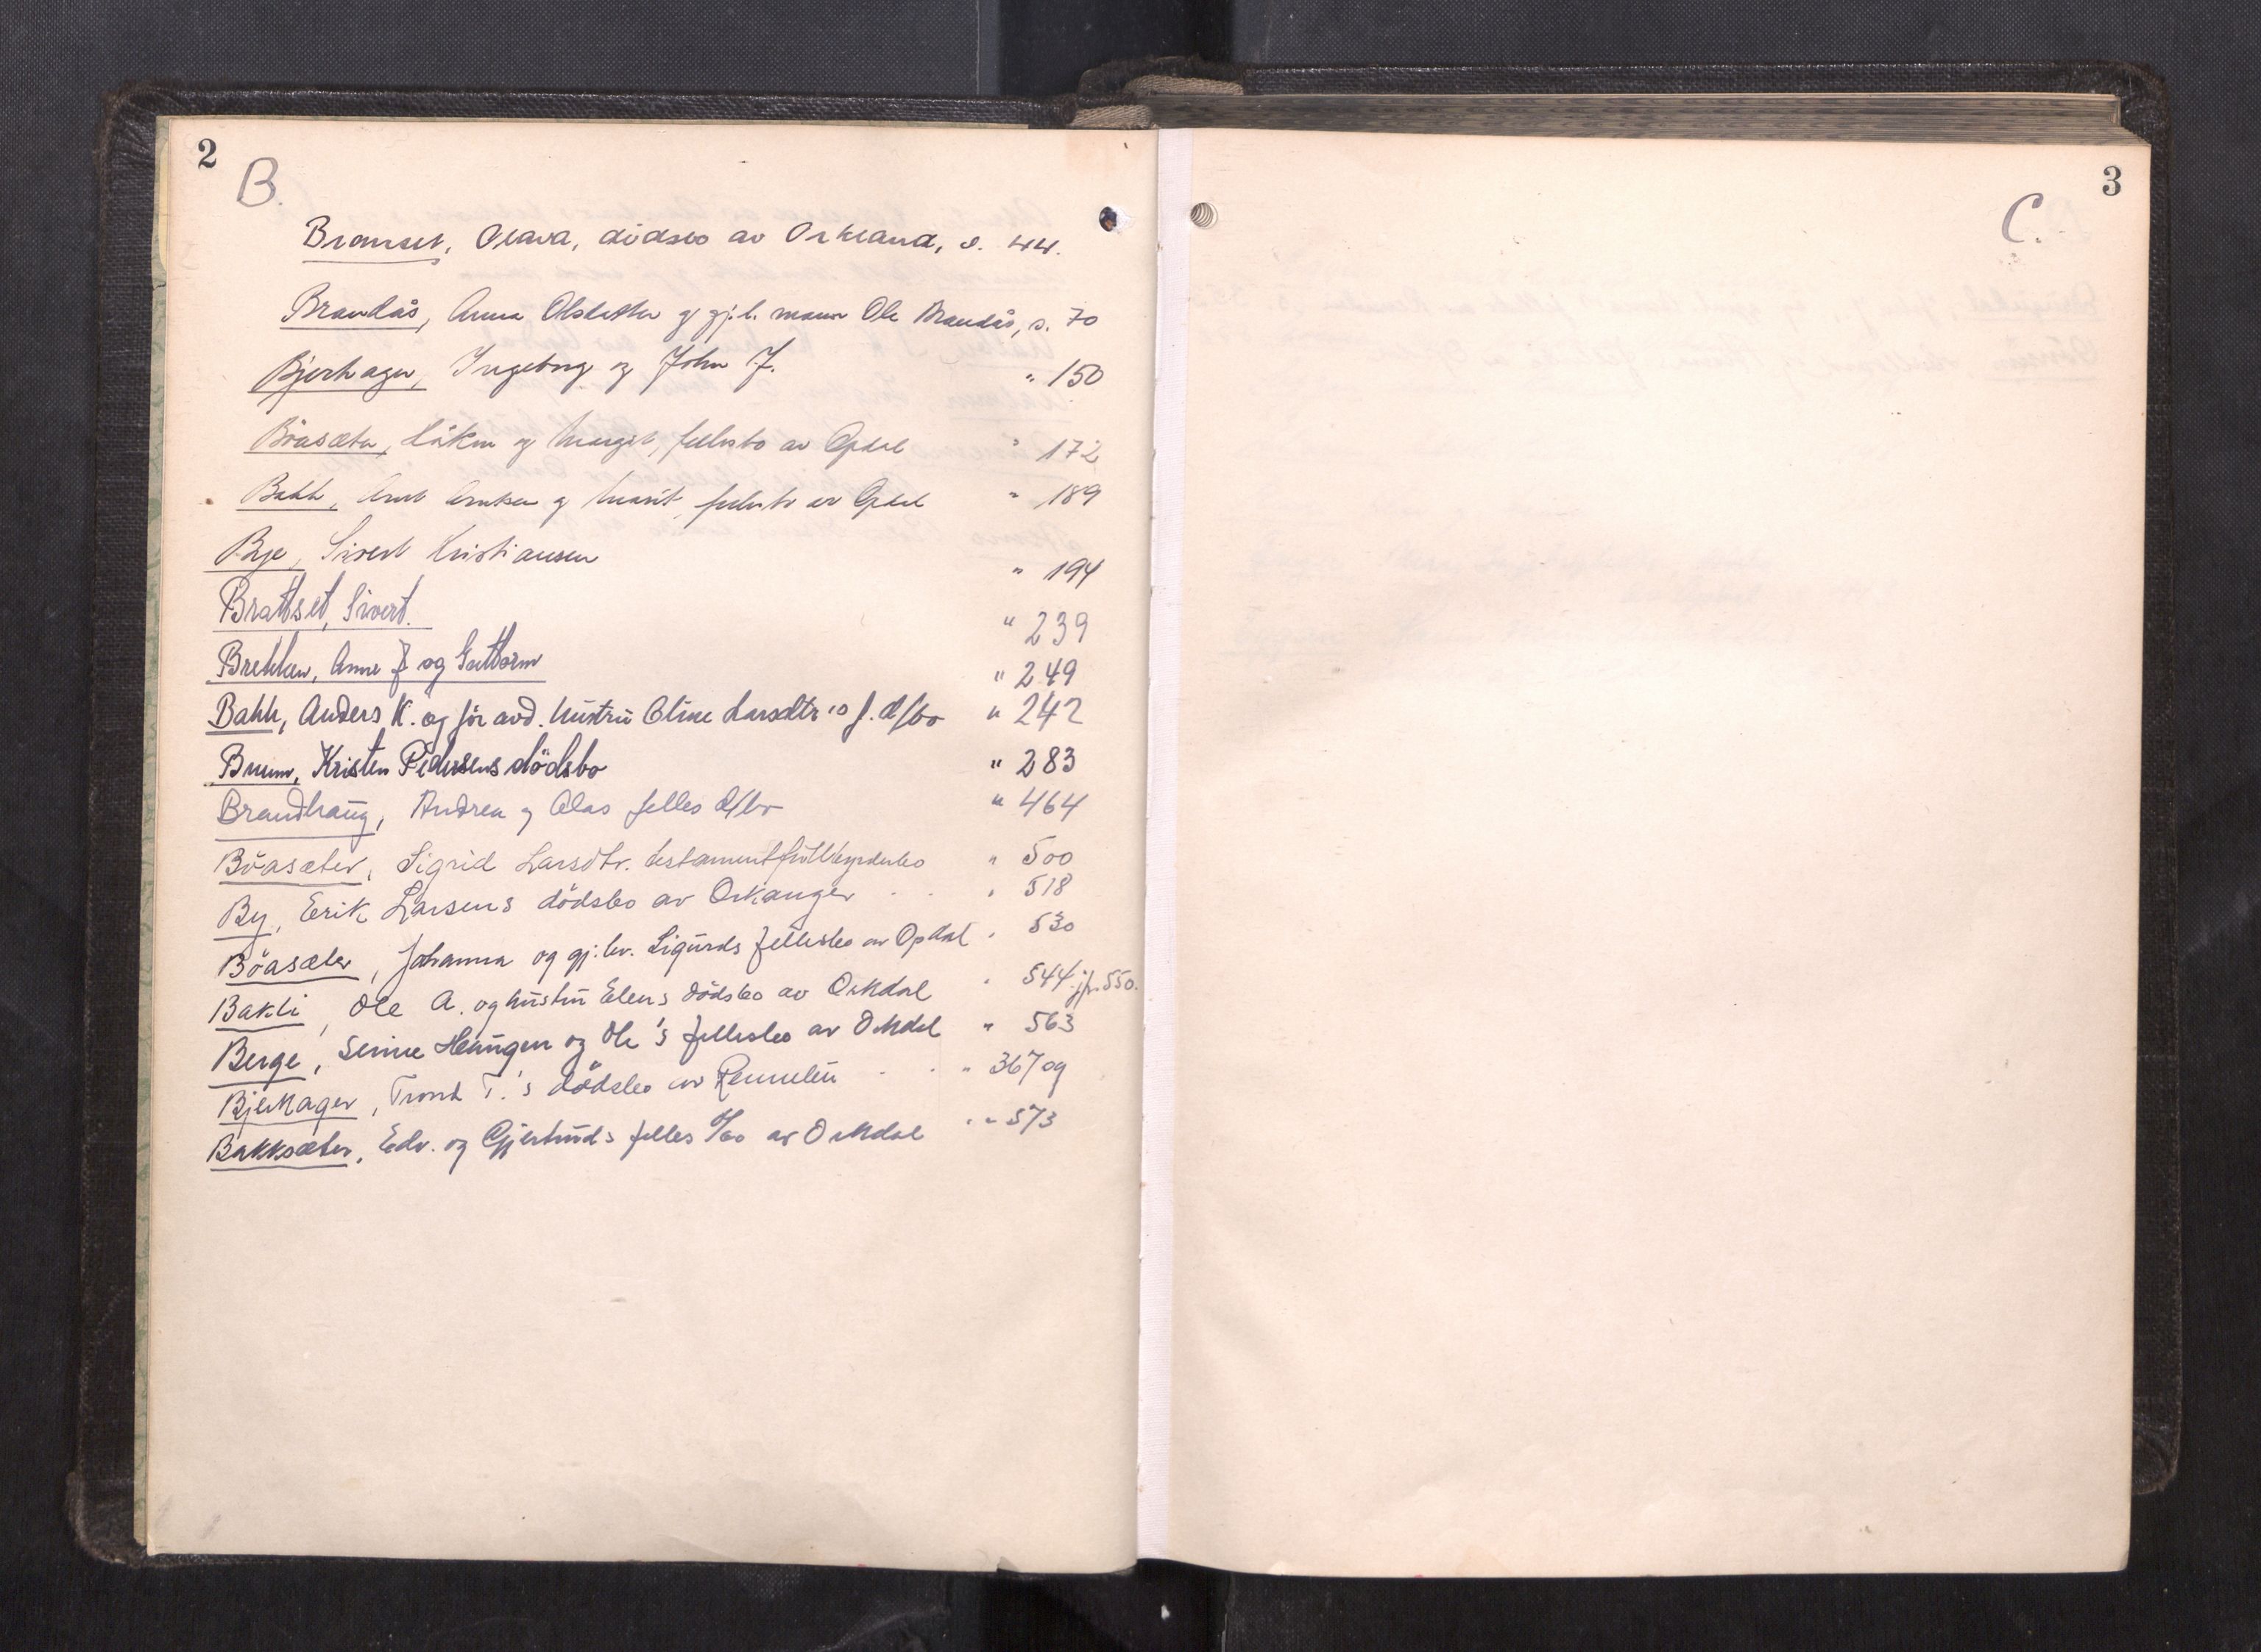 2
B.
Bromset, Olava, dödsbo av Orkland, s. 44.
Brandås, Anna Olsdatter og gj.l. mann Ole Brandås, s. 70
Bjerkager, Ingeborg og John J. " 150
Böasæter, Håken og Margit, fellesbo av Opdal " 172
Bakk, Arnt Arntsen og Marit, fellesbo av Opdal " 189
Bye, Sivert Kristiansen " 194
Brattset, Sivert. " 239
Brekken, Anne J og Guttorm " 249
Bakk, Anders K. og för avd. hustru Oline Larsdtr's f. d/bo " 242
Buum, Kristen Pedersens dödsbo " 283
Brandhaug, Andrea og Olas felles d/bo " 464
Böasæter, Sigrid Larsdtr. testamentfullbyrderbo " 500
By, Erik Larsens dödsbo av Orkanger " 518
Böasæter, Johanna og gj.lev. Sigurds fellesbo av Opdal " 530
Bakli, Ole A. og hustru Elens dödsbo av Orkdal " 544 jfr. 550.
Berge, Serine Haugen og Ole's fellesbo av Orkdal " 563
Bjerkager, Trond T.'s dödsbo av Rennebu " 367 og
Bakksæter, Edv. og Gjertruds felles d/bo av Orkdal " 573
3
C.